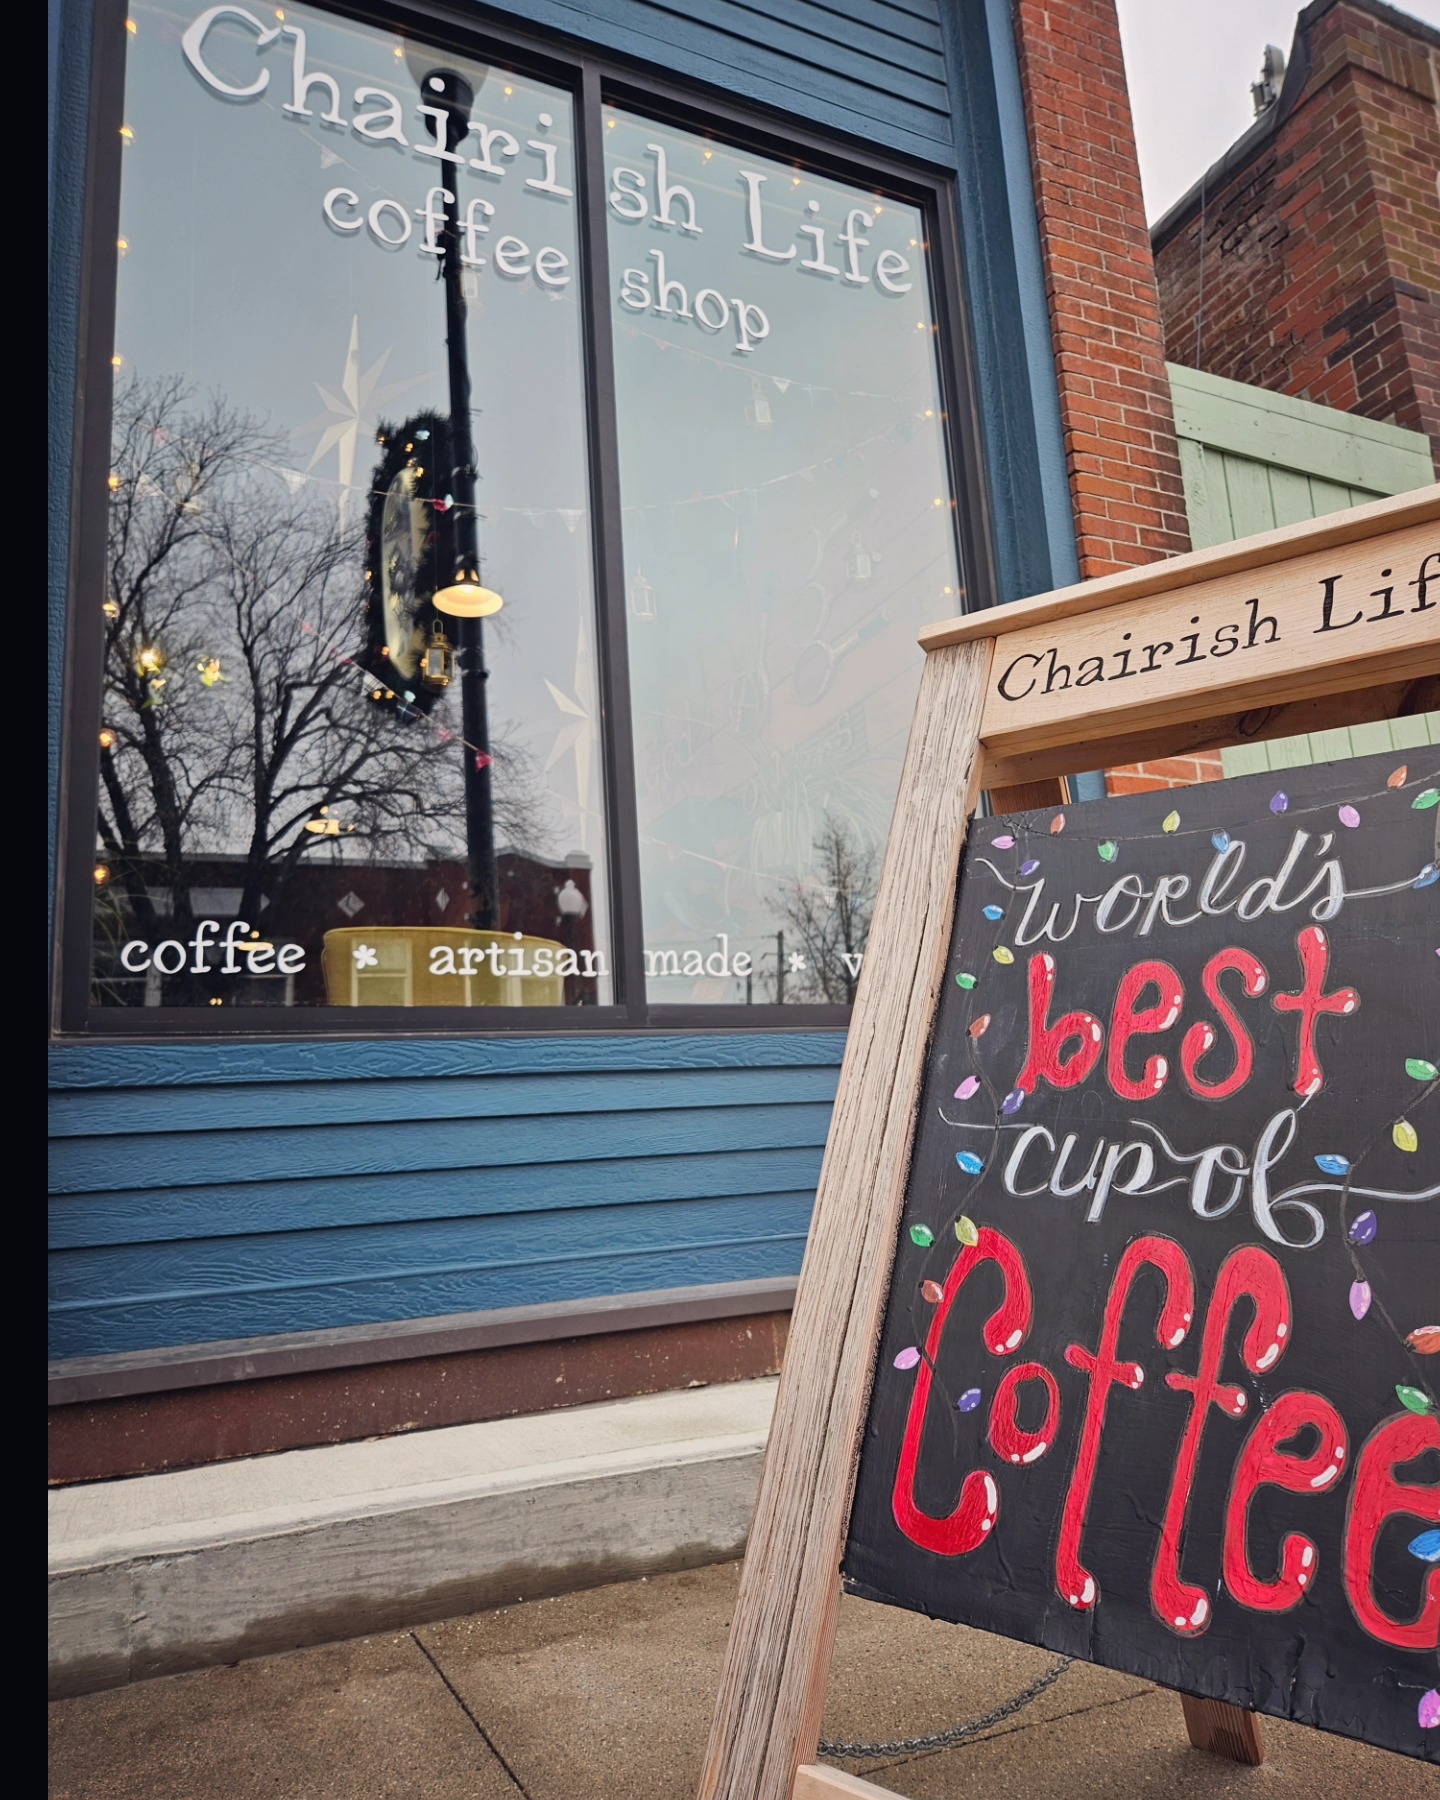 Chairish Life
coffee shop
coffee * artisan made *
Chairish
world's
best
cup of
Coffee